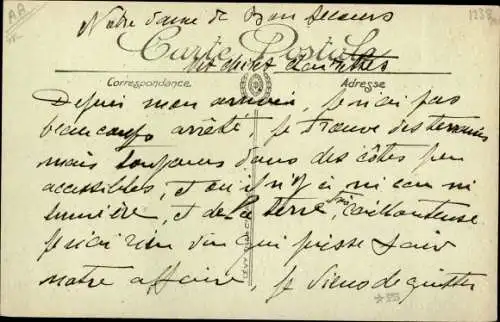 Notre dame de Bon Secours
Carte Postale
Correspondance
Adresse
Depuis mon arrivée, je n'ai pas
beaucoup arrêté. Je trouve des terrains
mais toujours dans des côtes peu
accessibles, et où il n'y a ni eau ni
lumière, et de la terre très caillouteuse
je n'ai rien vu qui puisse faire
notre affaire, je viens de quitter
LEVY